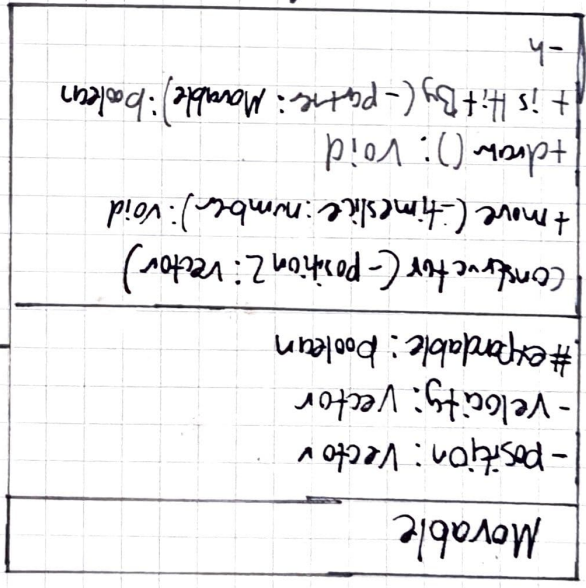 Movable
-position: Vector
-velocity: Vector
#expandable: boolean
constructor (-position2: vector)
+move (-timeslice: number): void
+draw (): void
+is Hit By (-partne: Movable): boolean
-h